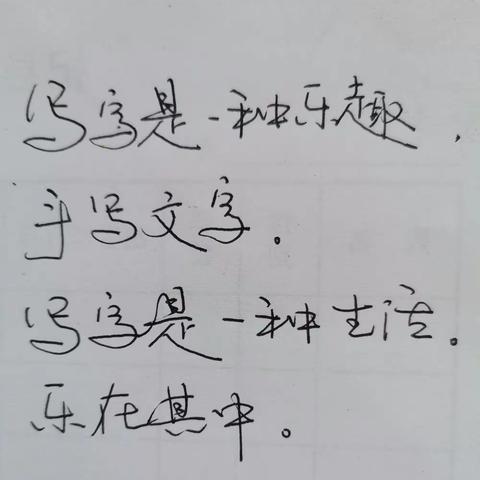 写字是一种乐趣,
手写文字。
写字是一种生活。
乐在其中。